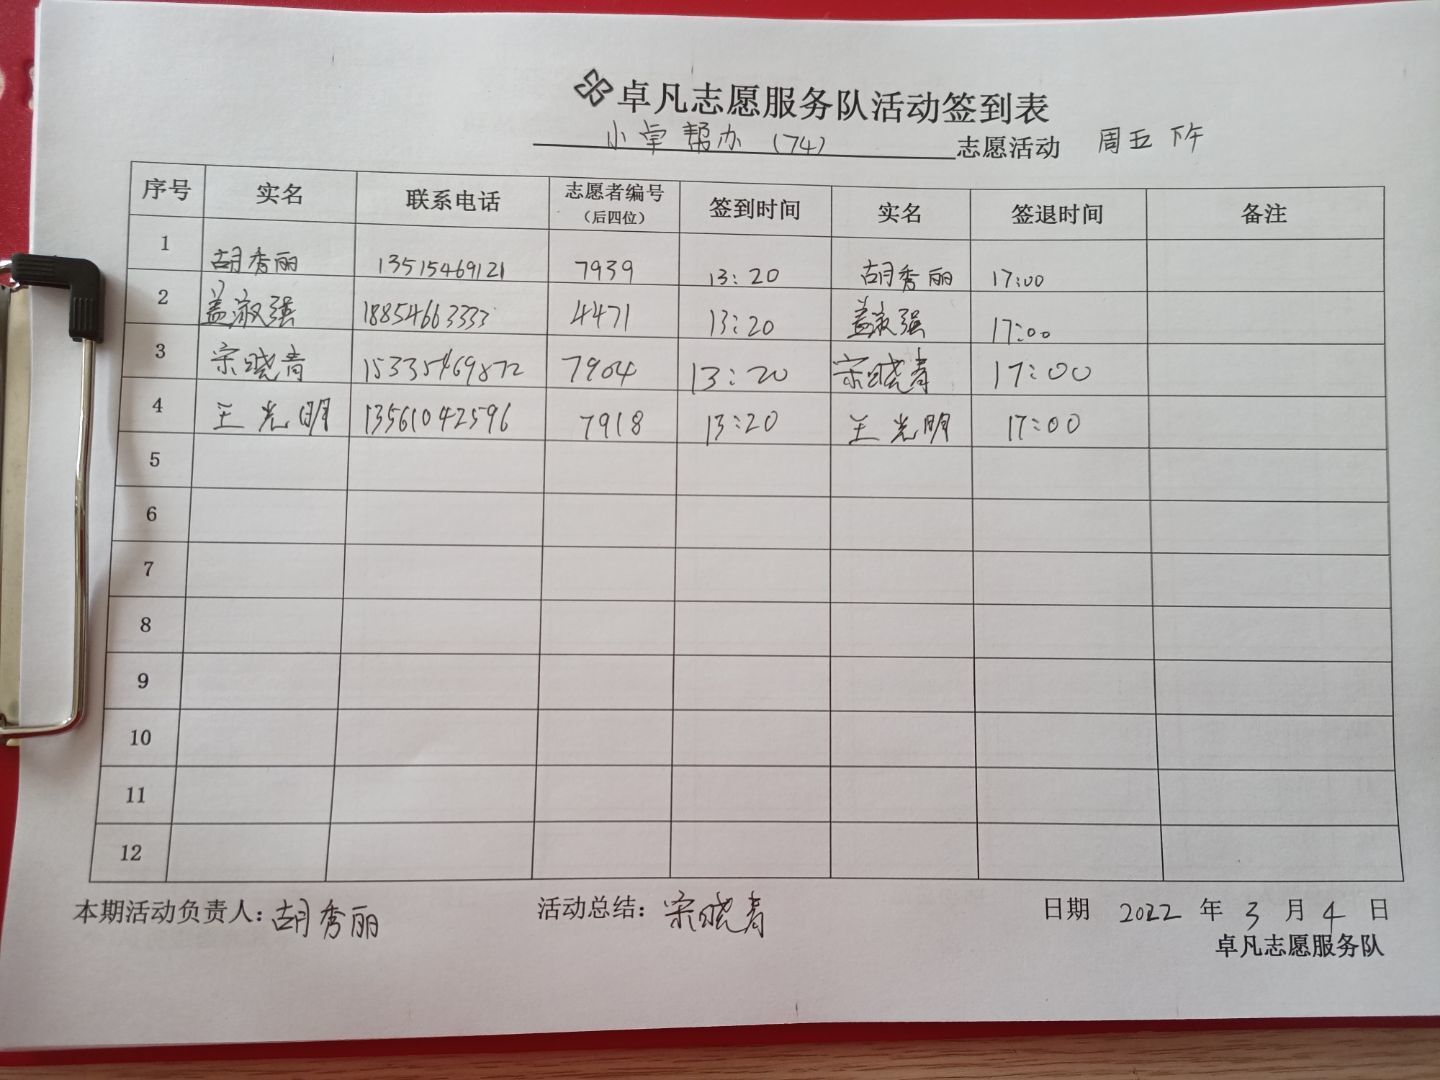 卓凡志愿服务队活动签到表
小卓帮办(74) 志愿活动 周五下午
序号 实名 联系电话 志愿者编号(后四位) 签到时间 实名 签退时间 备注
1 胡秀丽 13515469121 7939 13:20 胡秀丽 17:00
2 盖淑强 18854663333 4471 13:20 盖淑强 17:00
3 宋晓青 15335469872 7904 13:20 宋晓青 17:00
4 王光明 13561042596 7918 13:20 王光明 17:00
5
6
7
8
9
10
11
12
本期活动负责人:胡秀丽 活动总结:宋晓青 日期 2022 年 3 月 4 日
卓凡志愿服务队